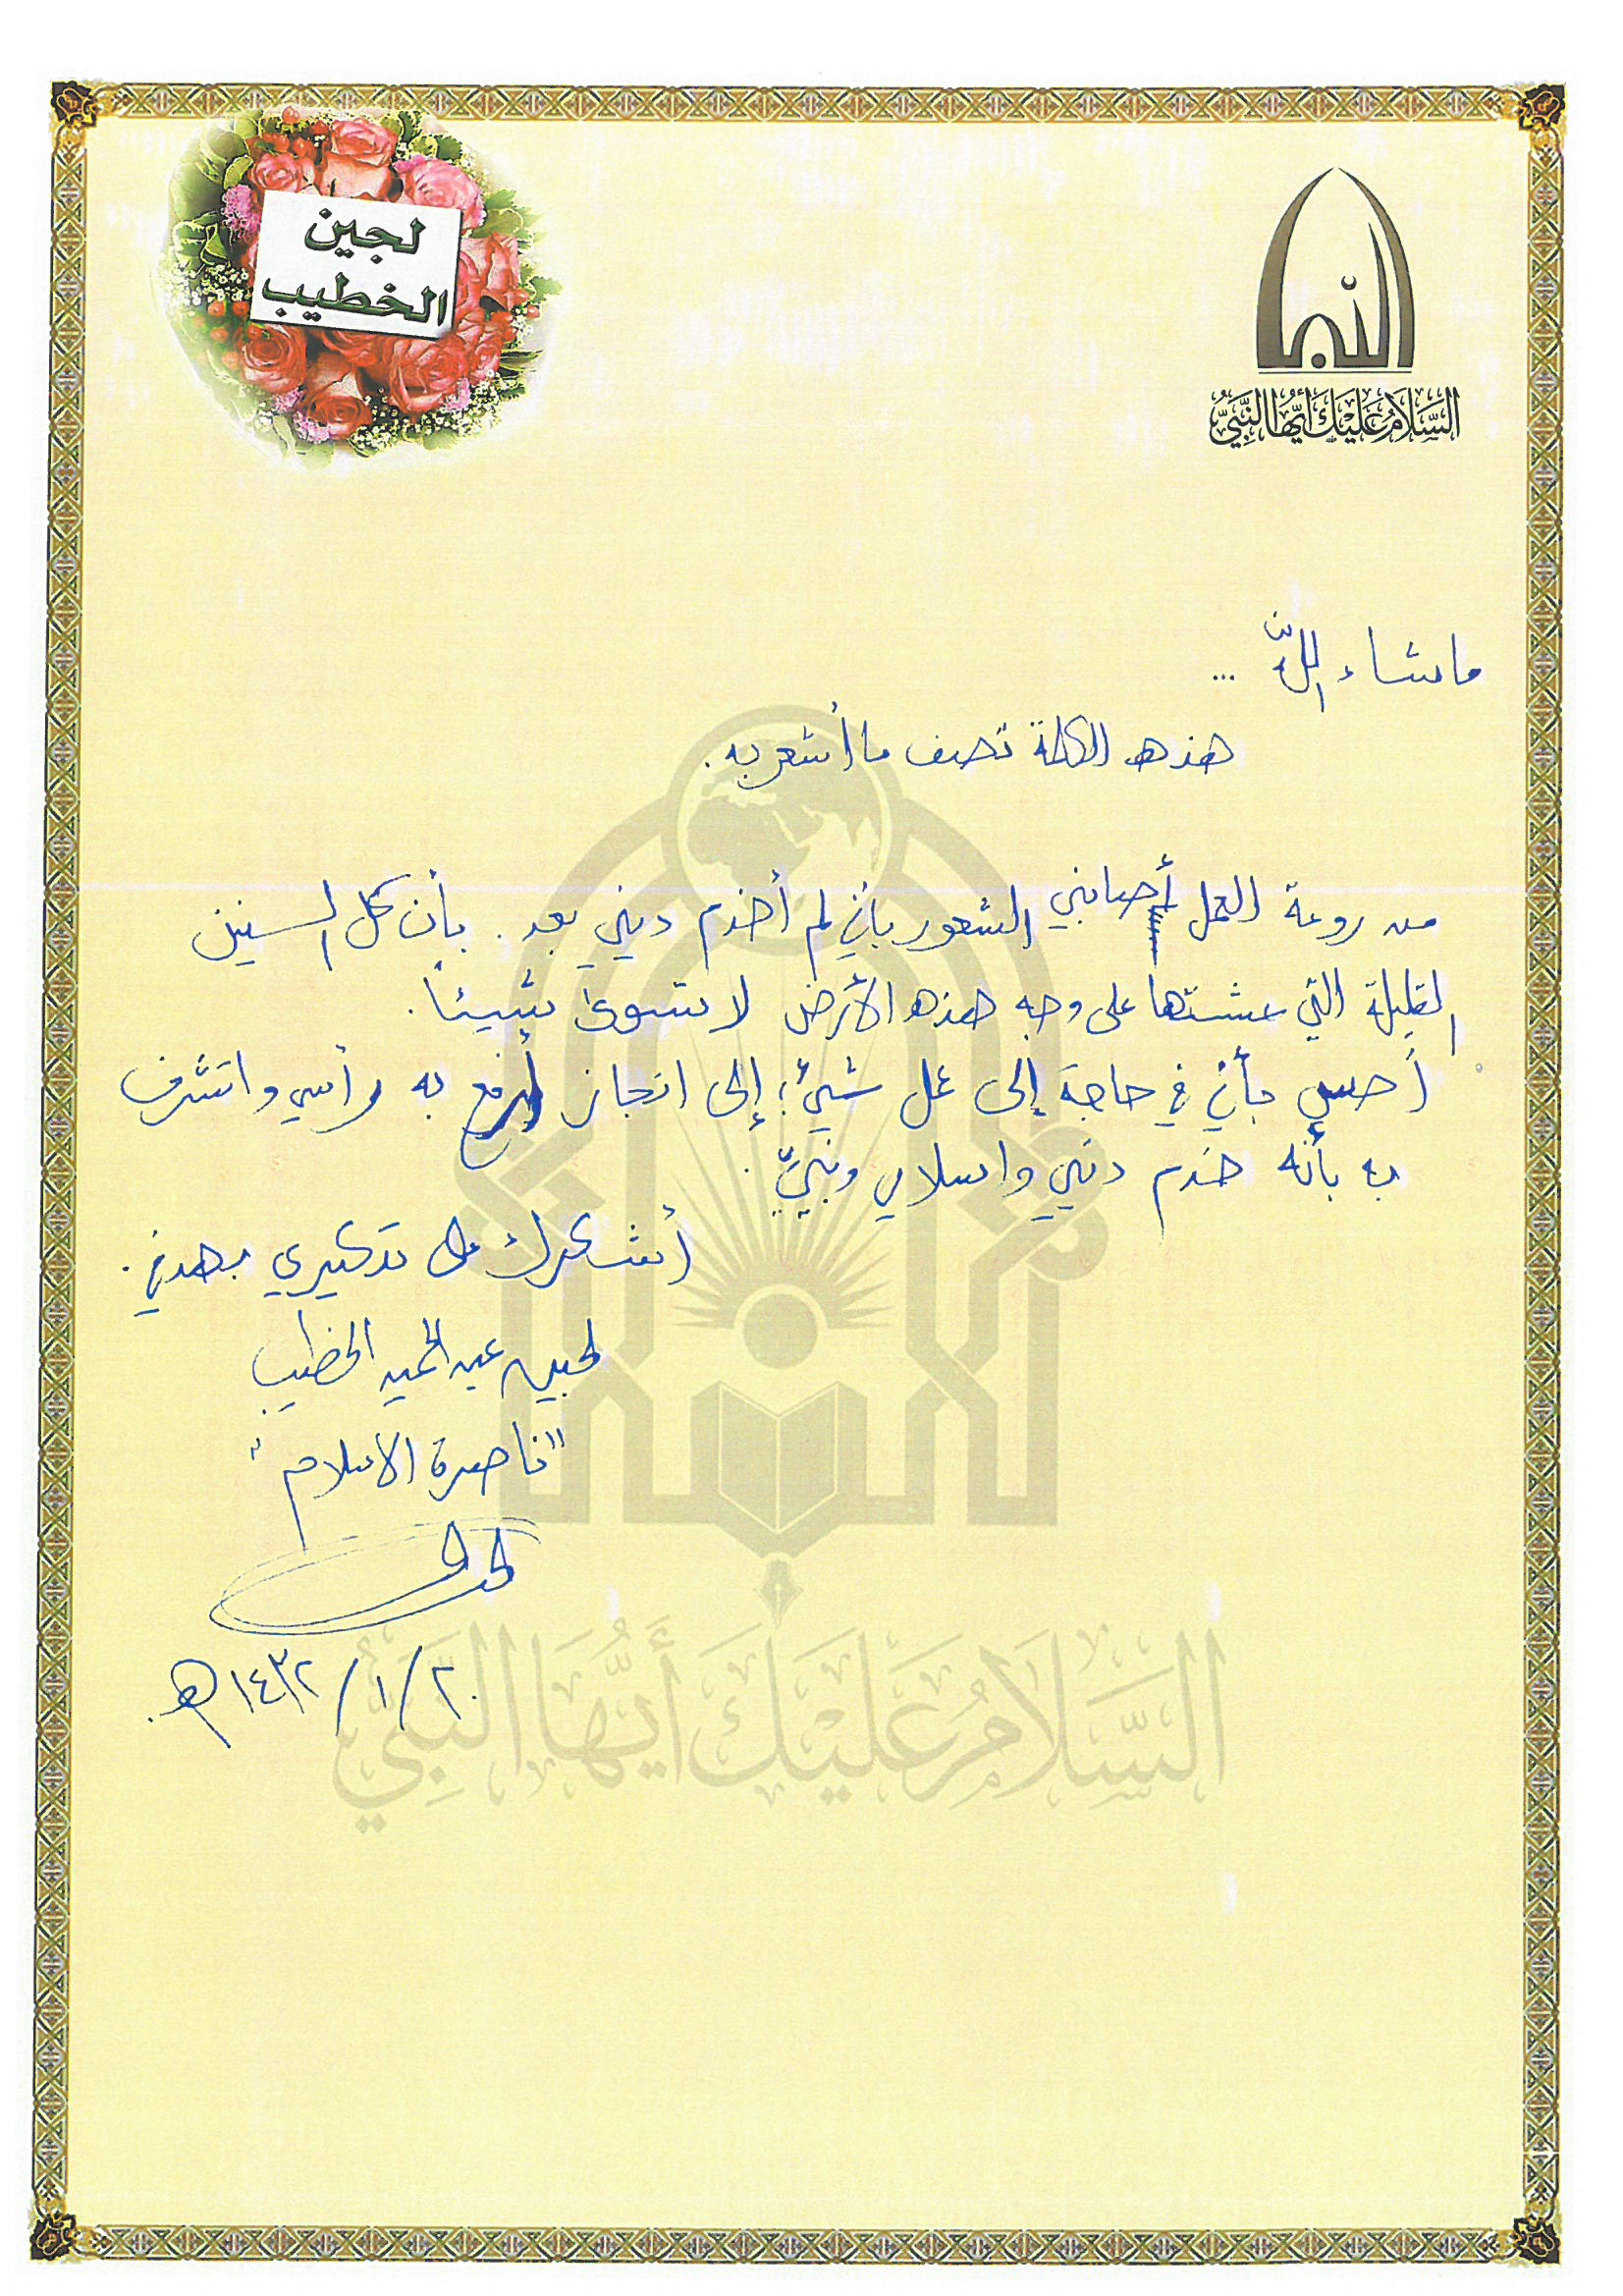 لجين
الخطيب
السلام عليك أيها النبي
ما شاء الله ...
هذه الكلمة تصف ما أشعر به .
من روعة العمل أصابني الشعور بأني لم أخدم ديني بعد . بأن كل السنين
القليلة التي عشتها على وجه هذه الأرض لا تسوى شيئاً .
أحس بأني في حاجة إلى عمل شيء ؛ إلى انجاز أرفع به رأسي واتشرف
به بأنه خدم ديني واسلامي ونبيّي .
أشكرك على تذكيري بهدفي .
لجين عبد الحميد الخطيب
"ناصرة الاسلام"
٢٠/١/١٤٣٢هـ.
السَّلَامُ عَلَيْكَ أَيُّهَا النَّبِيُّ